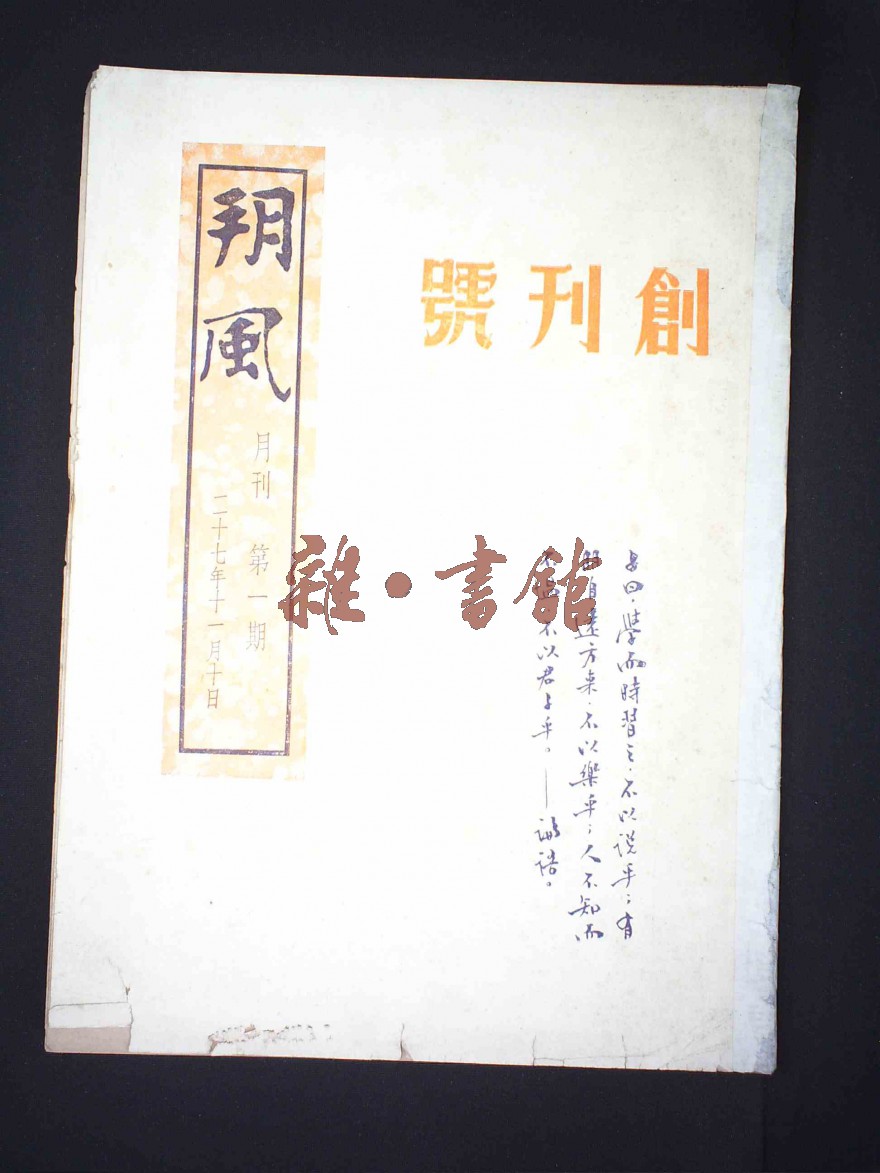 創刊號
朔風
月刊 第一期
二十七年十一月十日
子曰。學而時習之。不以說乎；有
朋自遠方來。不以樂乎；人不知而
不慍。不以君子乎。——論語。
雜·書館